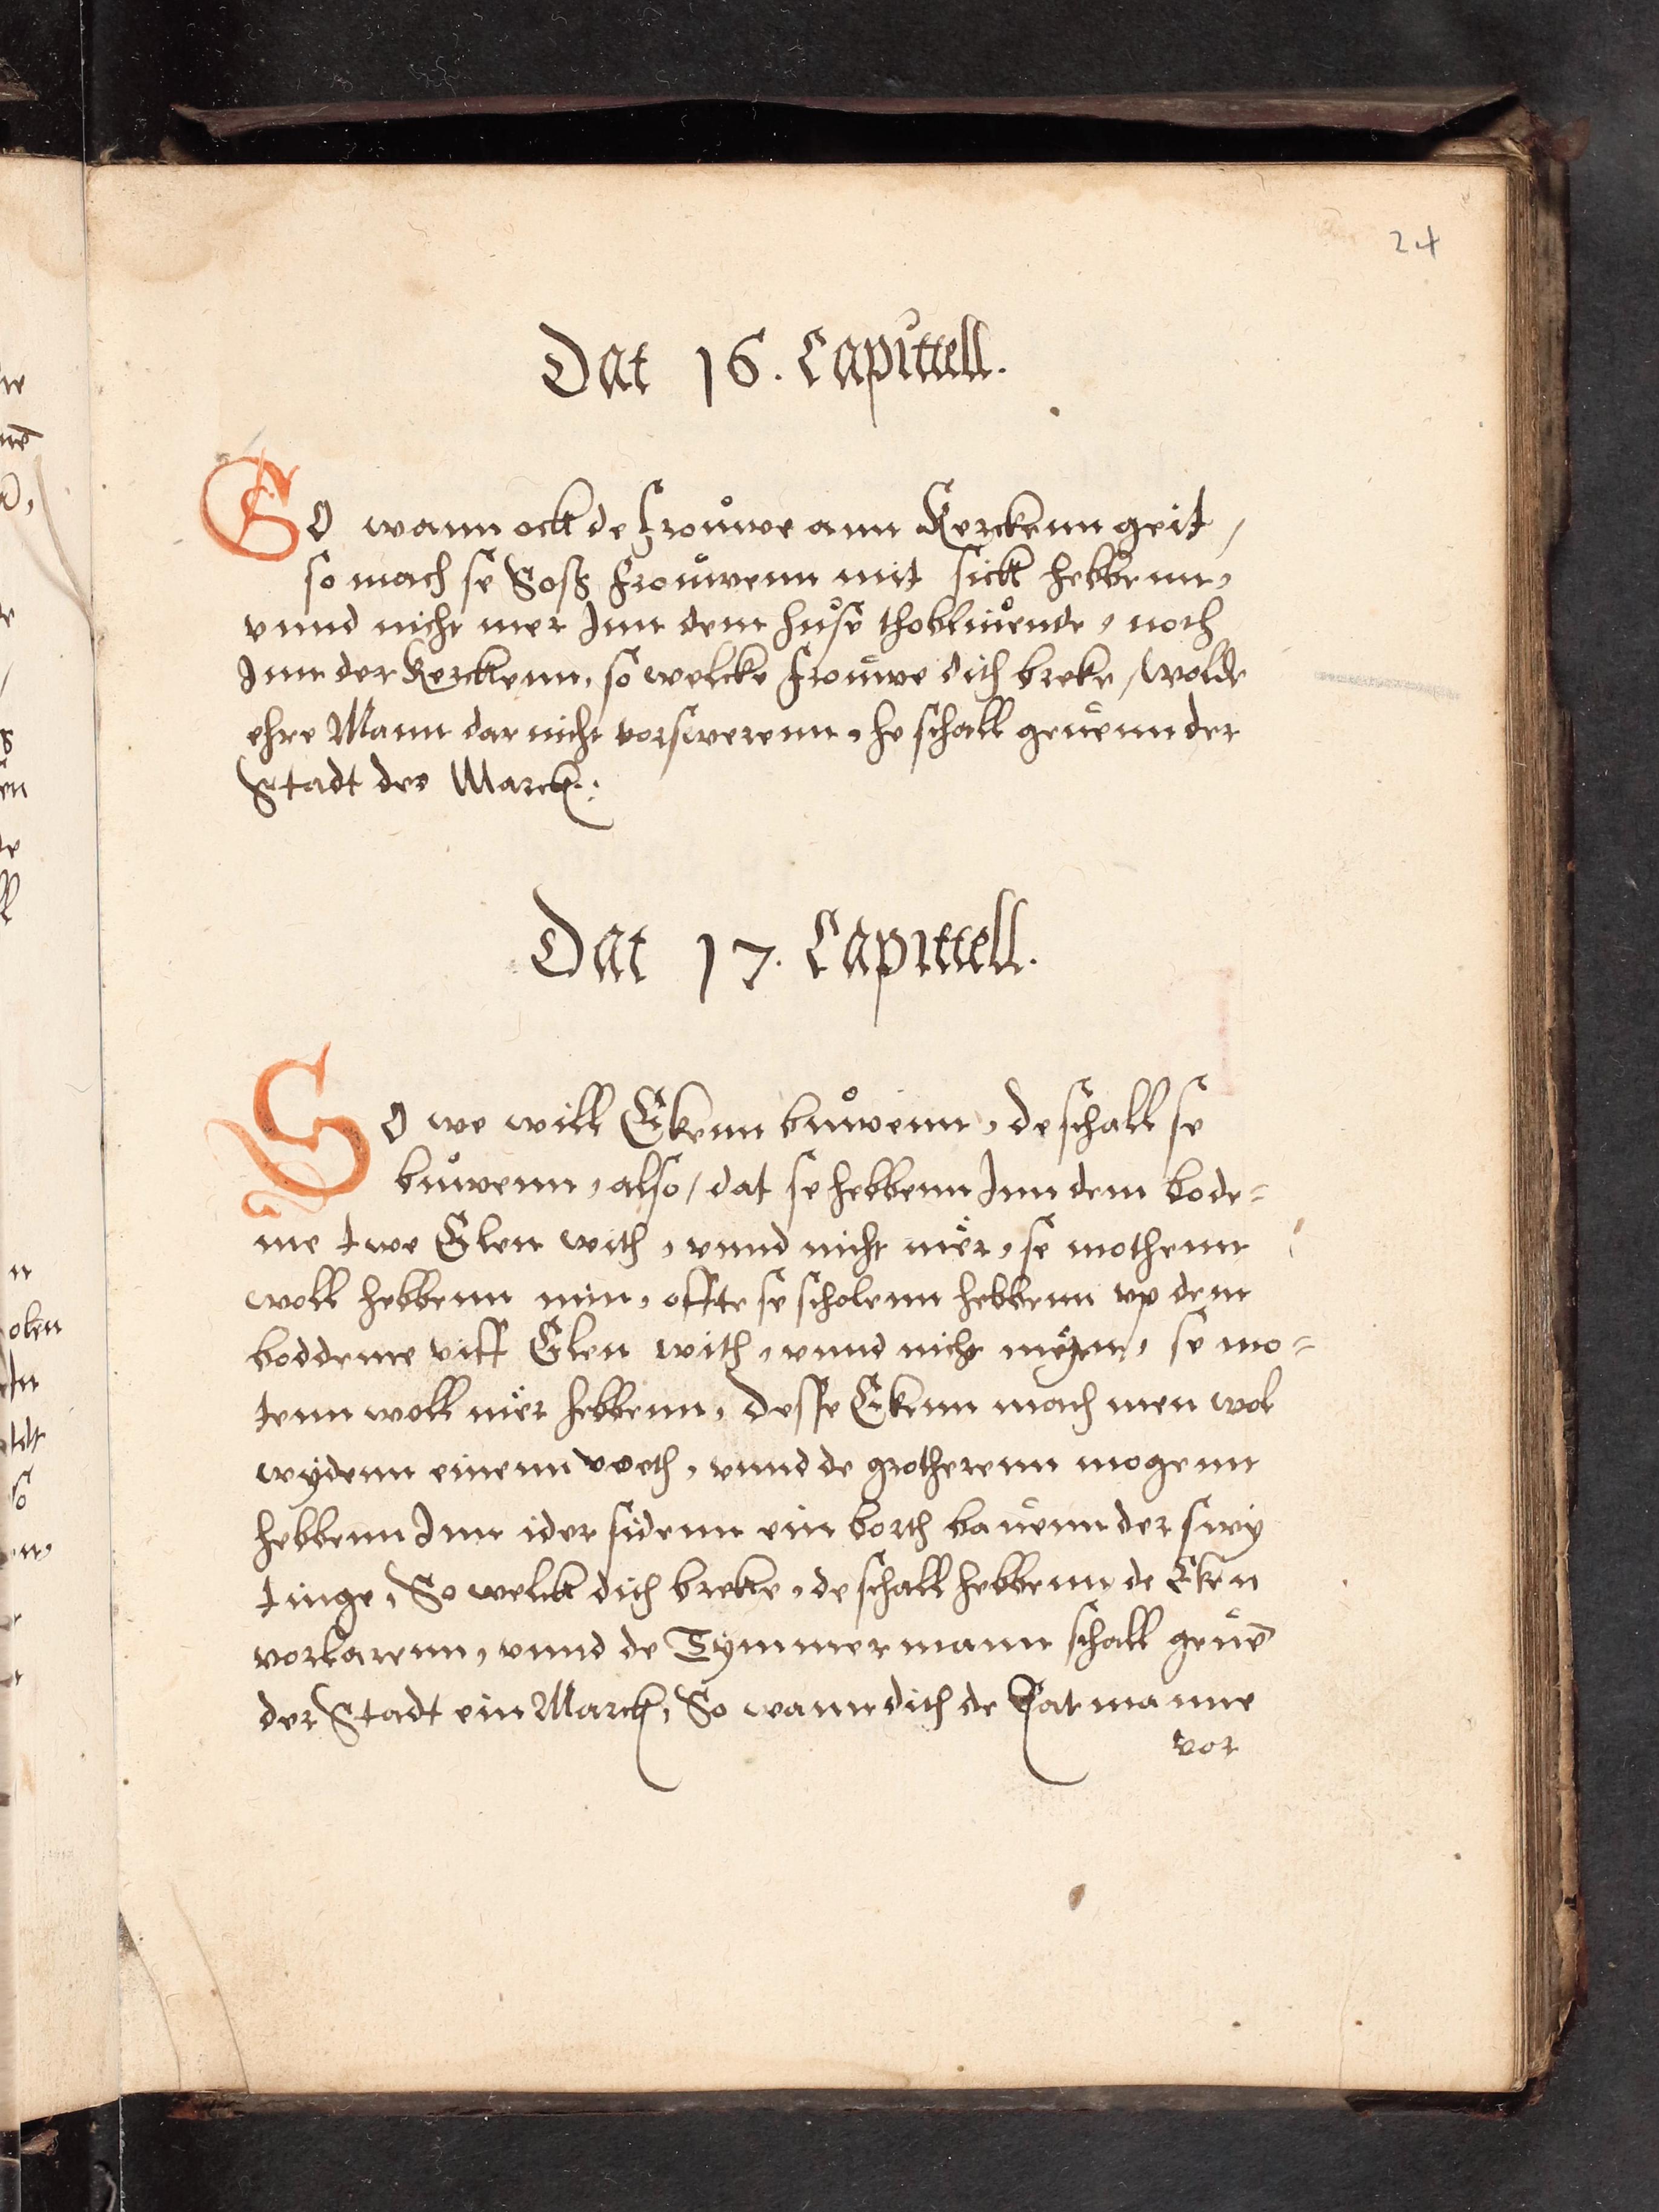 24
Dat 16. Capittell.
SO wann ock de frouwe ann Kerckenn geit /
so mach se Soß frouwenn mit sick hebbenn,
vnnd nicht mer Jnn dem huse thobliuende, noch
Jnn der Kerckenn, so welcke frouwe dith breke, wolde
ehre Mann dar nicht vorswerenn, he schall geuenn der
Stadt dre Marck.
Dat 17. Capittell.
SO we will Ekenn buwenn, de schall se
buwenn, also / dat se hebbenn Jnn dem bode-
me twe Elen with, vnnd nicht mer, se mothenn
woll hebbenn min, offte se scholenn hebbenn vp dem
boddeme viff Elen with, vnnd nicht, se mo-
tenn woll mer hebbenn, desse Ekenn mach men wol
wydenn einenn voeth, vnnd de grotherenn mogenn
hebbenn Jnn ider sidenn ein borth bauenn der swy
tinge, So welck dith breke, de schall hebbenn de Eken
vorlarenn, vnnd de Tymmermann schall geuē
der Stadt ein Marck, So wann dith de Ratmanne
vor